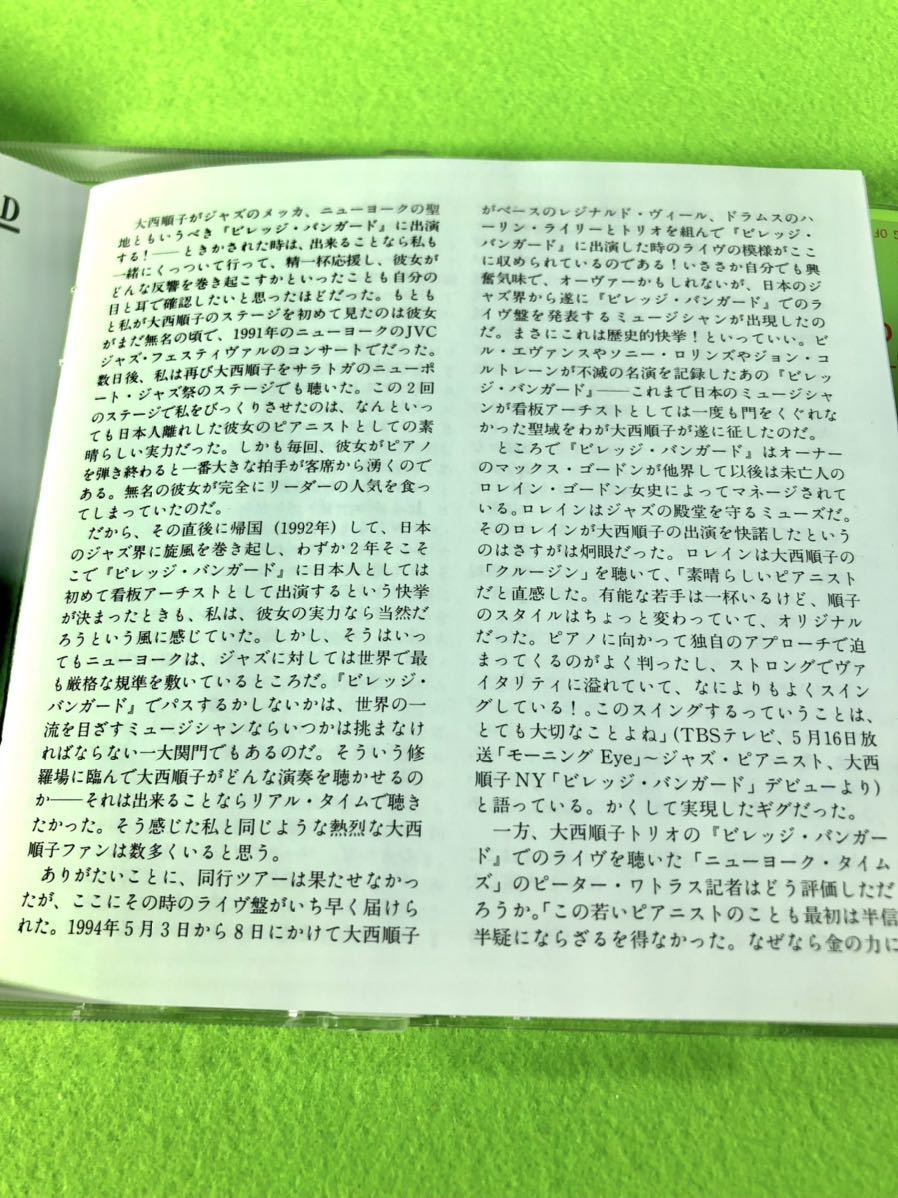 D
大西順子がジャズのメッカ、ニューヨークの聖
地ともいうべき『ビレッジ・バンガード』に出演
する!――ときかされた時は、出来ることなら私も
一緒にくっついて行って、精一杯応援し、彼女が
どんな反響を巻き起こすかといったことも自分の
目と耳で確認したいと思ったほどだった。もとも
と私が大西順子のステージを初めて見たのは彼女
がまだ無名の頃で、1991年のニューヨークのJVC
ジャズ・フェスティヴァルのコンサートでだった。
数日後、私は再び大西順子をサラトガのニューポ
ート・ジャズ祭のステージでも聴いた。この2回
のステージで私をびっくりさせたのは、なんといっ
ても日本人離れした彼女のピアニストとしての素
晴らしい実力だった。しかも毎回、彼女がピアノ
を弾き終わると一番大きな拍手が客席から湧くので
ある。無名の彼女が完全にリーダーの人気を食っ
てしまっていたのだ。
だから、その直後に帰国(1992年)して、日本
のジャズ界に旋風を巻き起し、わずか2年そこそ
こで『ビレッジ・バンガード』に日本人としては
初めて看板アーチストとして出演するという快挙
が決まったときも、私は、彼女の実力なら当然だ
ろうという風に感じていた。しかし、そうはいっ
てもニューヨークは、ジャズに対しては世界で最
も厳格な規準を敷いているところだ。『ビレッジ・
バンガード』でパスするかしないかは、世界の一
流を目ざすミュージシャンならいつかは挑まなけ
ればならない一大関門でもあるのだ。そういう修
羅場に臨んで大西順子がどんな演奏を聴かせるの
か――それは出来ることならリアル・タイムで聴き
たかった。そう感じた私と同じような熱烈な大西
順子ファンは数多くいると思う。
ありがたいことに、同行ツアーは果たせなかっ
たが、ここにその時のライヴ盤がいち早く届けら
れた。1994年5月3日から8日にかけて大西順子
がベースのレジナルド・ヴィール、ドラムスのハ
ーリン・ライリーとトリオを組んで『ビレッジ・
バンガード』に出演した時のライヴの模様がここ
に収められているのである!いささか自分でも興
奮気味で、オーヴァーかもしれないが、日本のジ
ャズ界から遂に『ビレッジ・バンガード』でのラ
イヴ盤を発表するミュージシャンが出現したの
だ。まさにこれは歴史的快挙!といっていい。ビ
ル・エヴァンスやソニー・ロリンズやジョン・コ
ルトレーンが不滅の名演を記録したあの『ビレッ
ジ・バンガード』――これまで日本のミュージシャ
ンが看板アーチストとしては一度も門をくぐれな
かった聖域をわが大西順子が遂に征したのだ。
ところで『ビレッジ・バンガード』はオーナー
のマックス・ゴードンが他界して以後は未亡人の
ロレイン・ゴードン女史によってマネージされて
いる。ロレインはジャズの殿堂を守るミューズだ。
そのロレインが大西順子の出演を快諾したという
のはさすがは炯眼だった。ロレインは大西順子の
「クルージン」を聴いて、「素晴らしいピアニスト
だと直感した。有能な若手は一杯いるけど、順子
のスタイルはちょっと変わっていて、オリジナル
だった。ピアノに向かって独自のアプローチで迫
まってくるのがよく判ったし、ストロングでヴァ
イタリティに溢れていて、なによりもよくスイン
グしている!。このスイングするっていうことは、
とても大切なことよね」(TBSテレビ、5月16日放
送「モーニングEye」~ジャズ・ピアニスト、大西
順子NY「ビレッジ・バンガード」デビューより)
と語っている。かくして実現したギグだった。
一方、大西順子トリオの『ビレッジ・バンガー
ド』でのライヴを聴いた「ニューヨーク・タイム
ズ」のピーター・ワトラス記者はどう評価しただ
ろうか。「この若いピアニストのことも最初は半信
半疑にならざるを得なかった。なぜなら金の力に